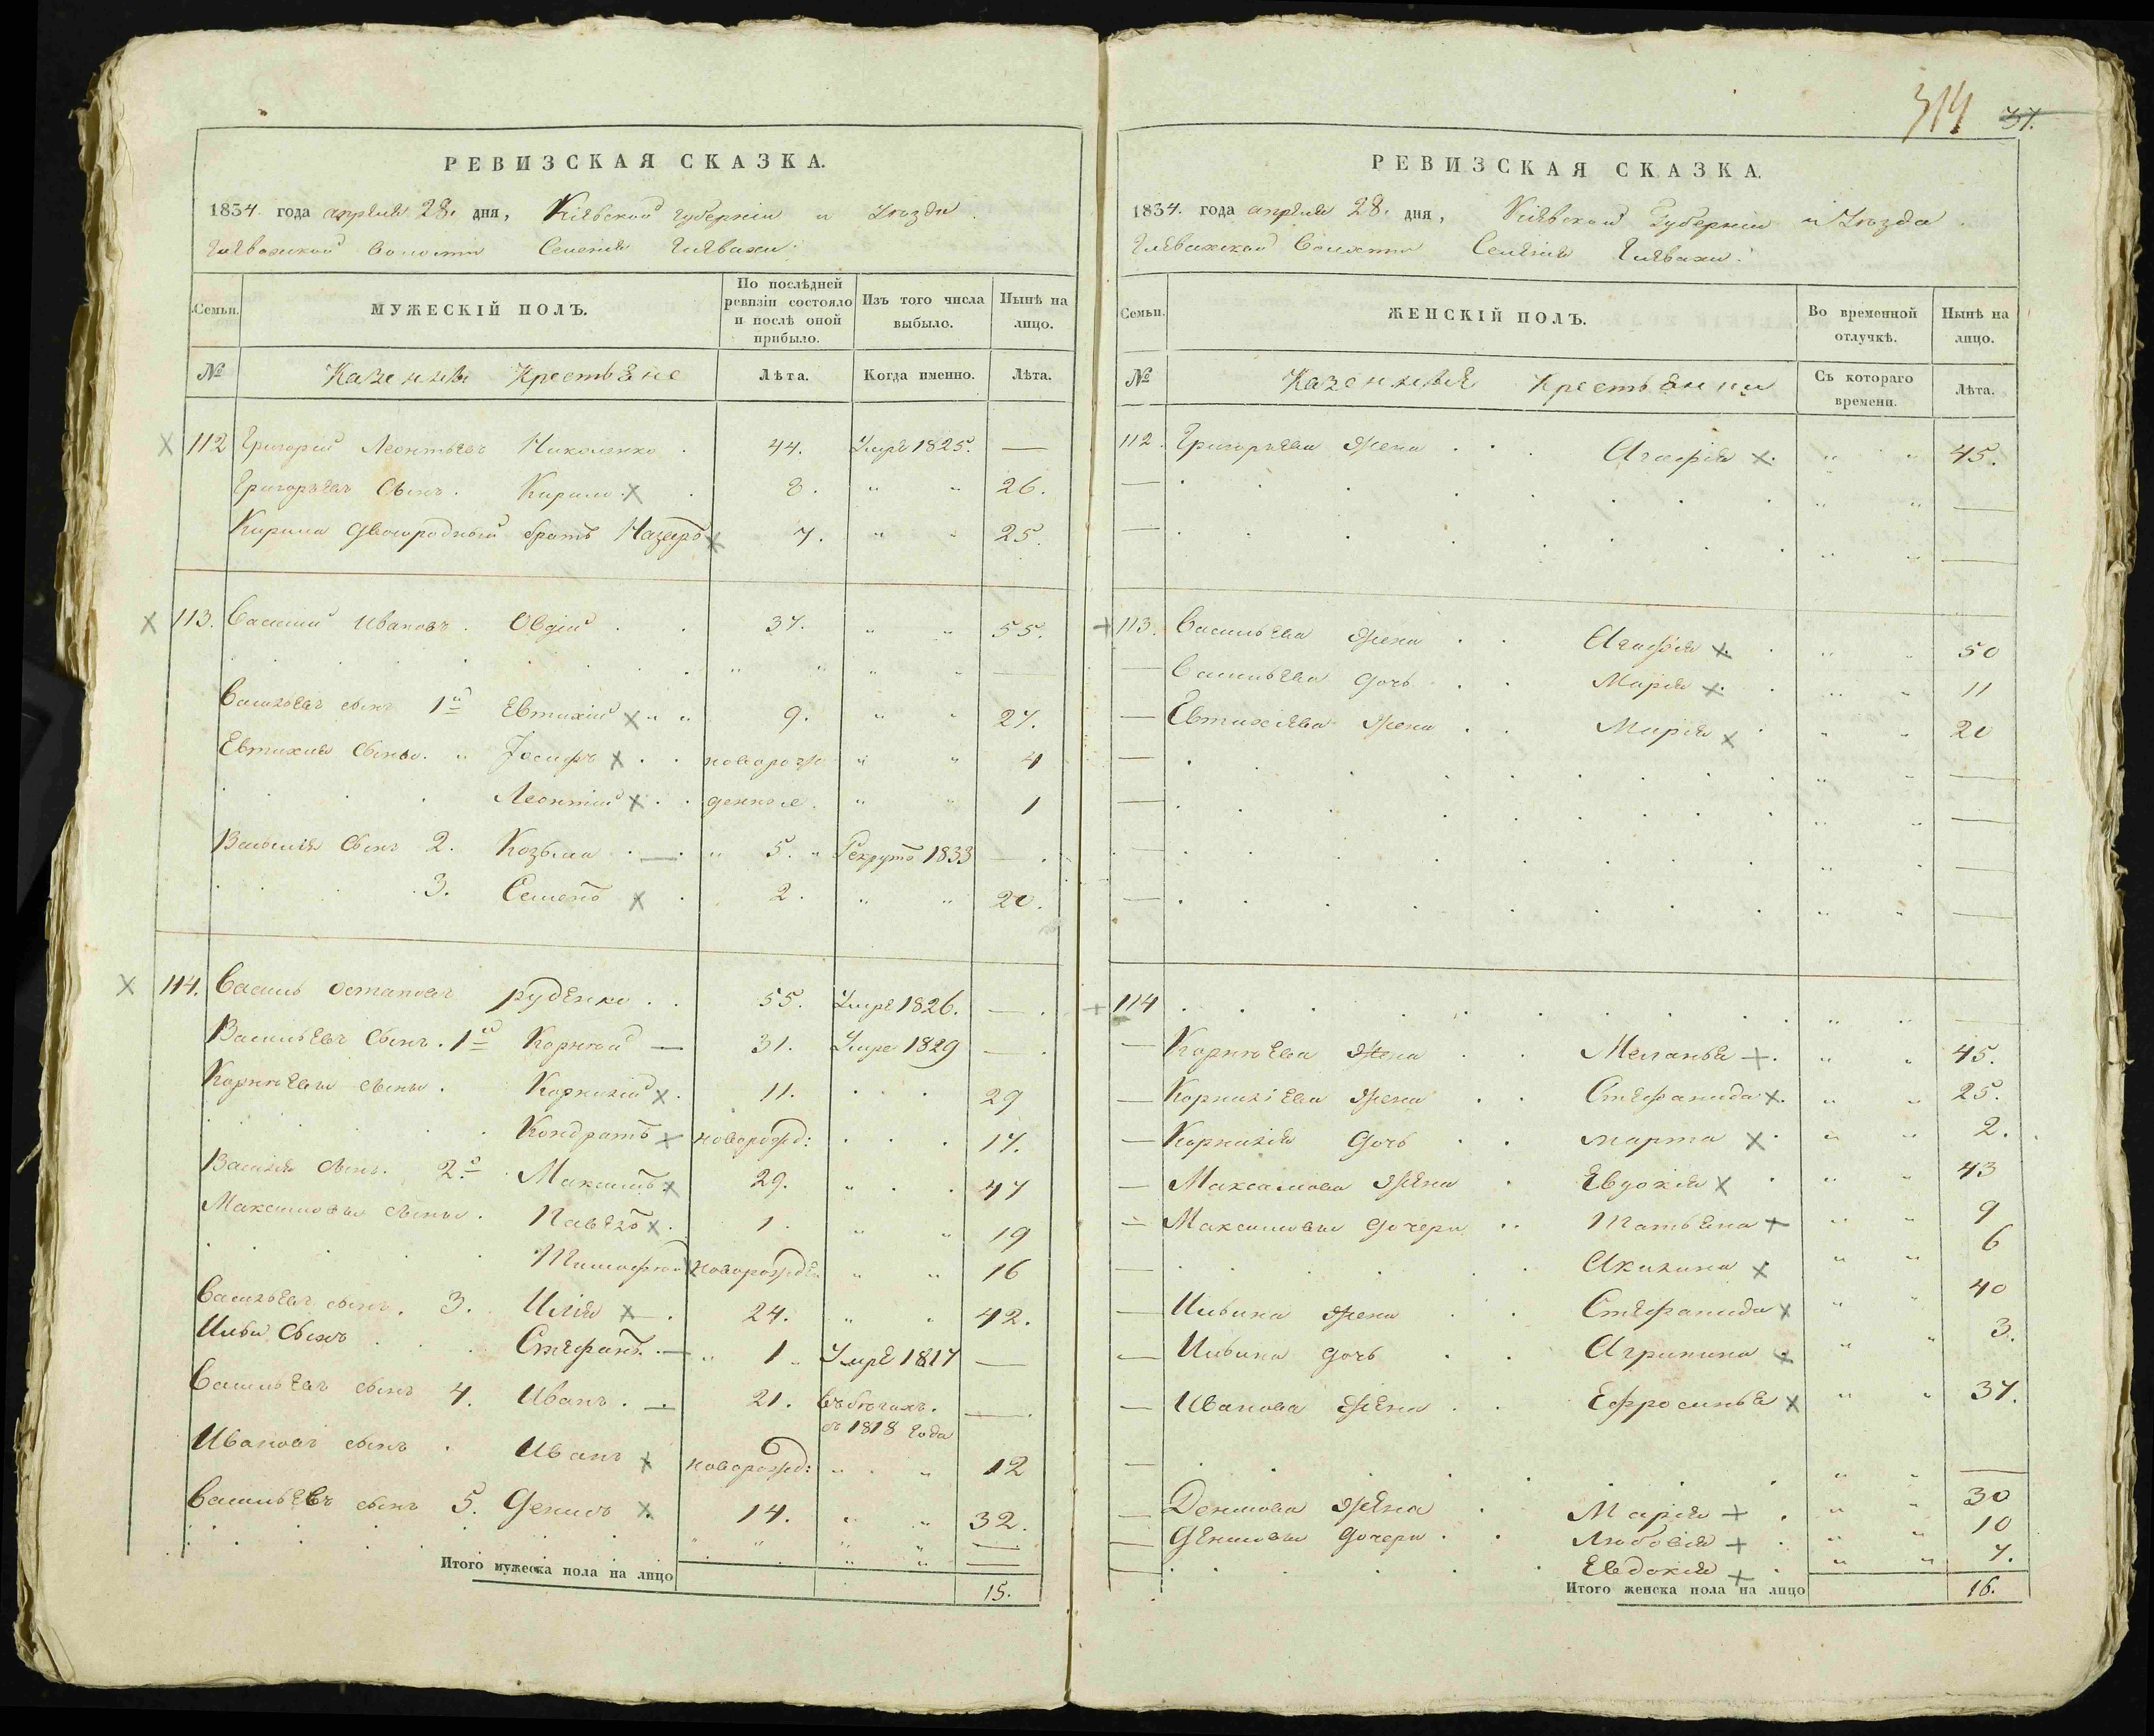 314 37.
РЕВИЗСКАЯ СКАЗКА.
1834. года апреля 28. дня, Кіевской губерніи и уѣзда
Глевахской волости Селенія Глевахи.
Семьи. МУЖЕСКІЙ ПОЛЪ. По послѣдней ревизіи состояло и послѣ оной прибыло. Изъ того числа выбыло. Нынѣ на лицо.
№ Казенные Крестьяне Лѣта. Когда именно. Лѣта.
112 Григорій Леонтьевъ Николенко 44. Умре 1825. —
Григорьевъ сынъ. Кирило 8. 26.
Кирила двоюродный братъ Назаръ 7. 25.
113. Василий Ивановъ Овдій 37. 55.
Васильевъ сынъ 1й Евтихій 9. 27.
Евтихия сыны Іосифъ новорож 4
Леонтий денные 1
Василия сынъ 2. Козьма 5. Рекрутъ 1833 —
3. Семенъ 2. 20.
114. Василь Остаповъ руденко 55. Умре 1826. —
Васильевъ сынъ. 1й Корней — 31. Умре 1829 —
Корнеевы сыны. Корнилій 11. 29
Кондратъ новорожд: 17.
Василия сынъ. 2й Максимъ 29. 47
Максимовы сыны. Павелъ 1. 19
Тимофей новорожден 16
Васильевъ сынъ. 3. Илія 24. 42.
Ильи сынъ Стефанъ — 1 Умре 1817 —
Васильевъ сынъ 4. Иванъ — 21. въ бегахъ. —
съ 1818 года
Ивановъ сынъ Иванъ новорожд: 12
Васильевъ сынъ 5. Денисъ 14. 32.
Итого мужеска пола на лицо 15.
РЕВИЗСКАЯ СКАЗКА.
1834. года апреля 28. дня, Кіевской Губерніи и Уѣзда
Глевахской Волости Селенія Глевахи.
Семьи. ЖЕНСКІЙ ПОЛЪ. Во временной отлучкѣ. Нынѣ на лицо.
№ Казенные Крестьянки Съ котораго времени. Лѣта.
112. Григорьева жена Агафія 45.
113. Васильева жена Агафія 50
Васильева дочь Марія 11
Евтихіева жена Марія 20
114
Корнеева жена Меланья 45.
Корниліева жена Стефанида 25.
Корнилія дочь марта 2.
Максимова жена Евдокія 43
Максимовы дочери Татьяна 9
Акилина 6
Ильина жена Стефанида 40
Ильина дочь Агрипина 3.
Иванова жена Ефросинья 37.
Денисова жена Марія 30
Денисовы дочери Любовія 10
Евдокія 7.
Итого женска пола на лицо 16.